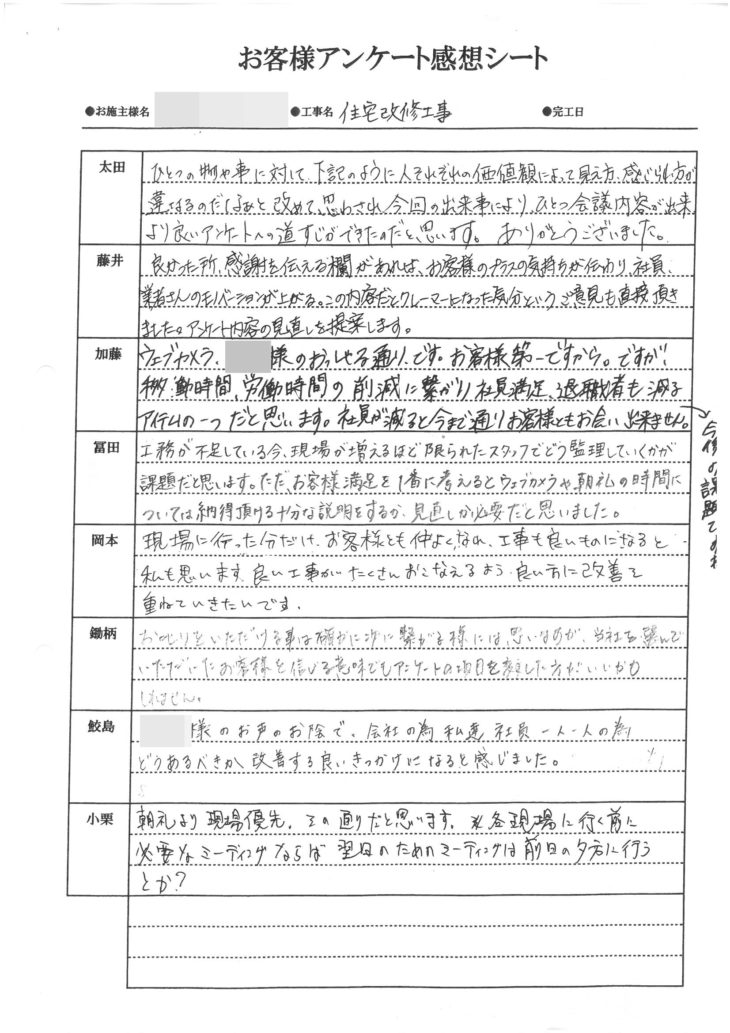 お客様アンケート感想シート
●お施主様名 ●工事名 住宅改修工事 ●完工日
太田
ひとつの物や事に対して、下記のように人それぞれの価値観によって見え方、感じられ方が
違なるのだなぁと改めて、思わされ今回の出来事により、ひとつ会議内容が出来
より良いアンケートへの道すじができたのだと思います。ありがとうございました。
藤井
良かった所、感謝を伝える欄があれば、お客様のプラスの気持ちが伝わり、社員、
業者さんのモチベーションが上がる。この内容だとクレーマーになった気分というご意見も直接頂き
ました。アンケート内容の見直しを提案します。
加藤
ウェブカメラ、 様のおっしゃる通りです。お客様第一ですから。ですが、
移動時間、労働時間の削減に繋がり、社員満足、退職者も減る
アイテムの一つだと思います。社員が減ると今まで通りお客様ともお会い出来ません。
今後の課題ですね
冨田
工務が不足している今、現場が増えるほど限られたスタッフでどう監理していくかが
課題だと思います。ただ、お客様満足を1番に考えるとウェブカメラや、朝礼の時間に
ついては納得頂ける十分な説明をするか、見直しが必要だと思いました。
岡本
現場に行った分だけ、お客様とも仲よくなれ、工事も良いものになると
私も思います。良い工事がたくさんおこなえるよう、良い方に改善を
重ねていきたいです。
鋤柄
おしかりをいただける事は確かに次に繋がる様には思いますが、当社を選んで
いただいたお客様を信じる意味でもアンケートの項目を変更した方がいいかも
しれません。
鮫島
様のお声のお陰で、会社の為 私達 社員 一人一人の為
どうあるべきか、改善する良いきっかけになると感じました。
小栗
朝礼より現場優先、その通りだと思います。※各現場に行く前に
必要なミーティングならば 翌日のためのミーティングは前日の夕方に行う
とか?